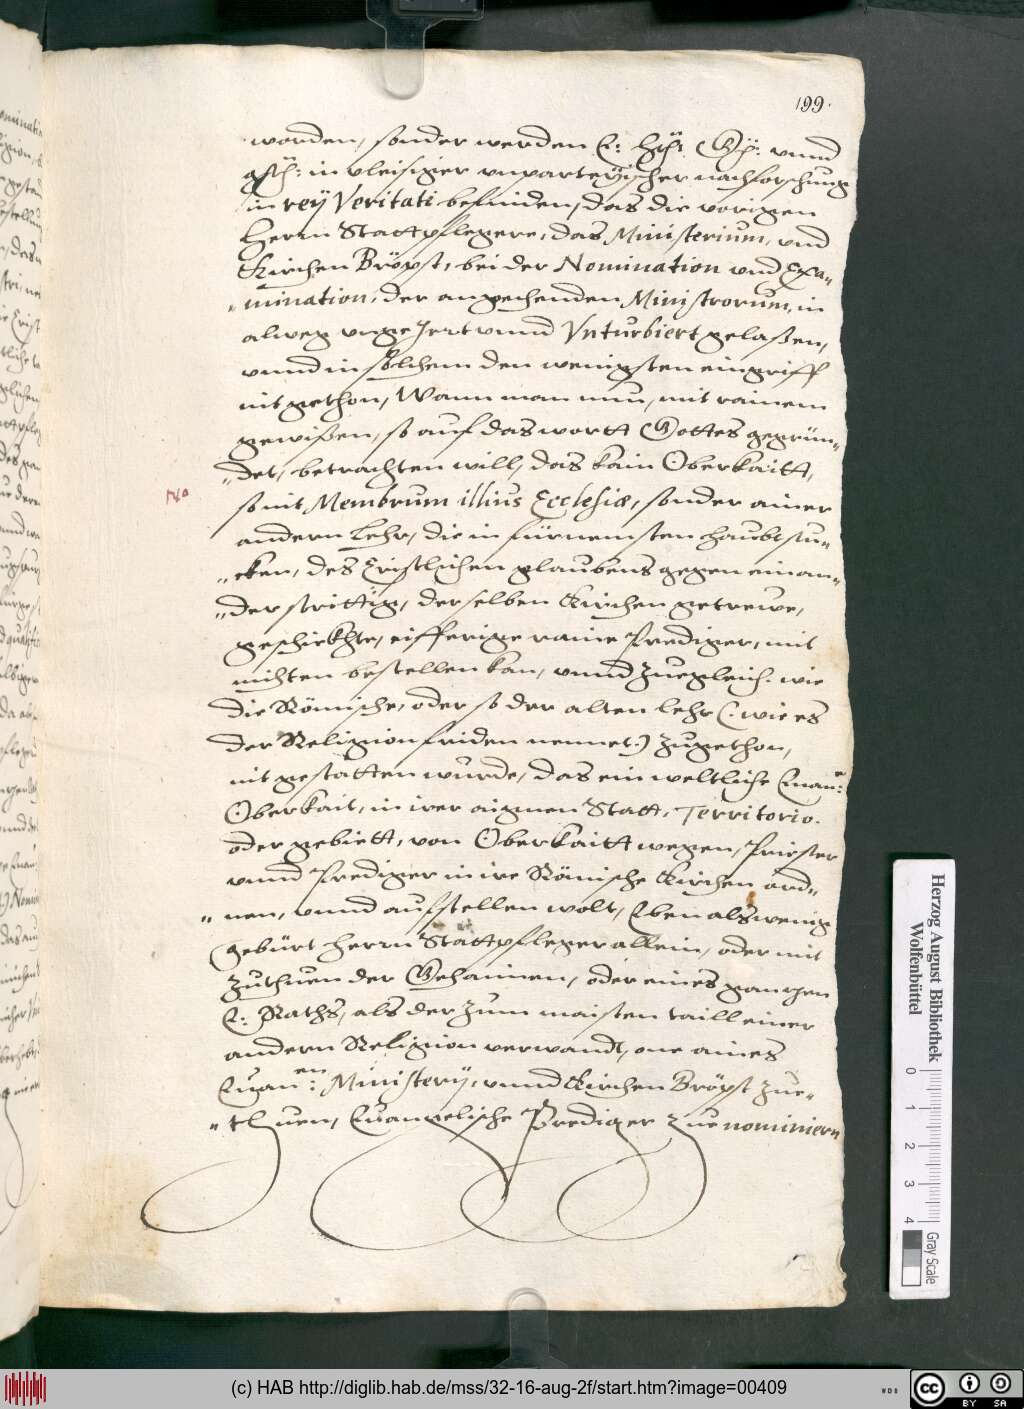 199.
worden, sonder werden E: Hf: Gn: vnnd
gst: in vleisiger vnparteyischer nachforschung
in rey Veritati befinden, das die vorigen
Herrn Stattpflegere, das Ministerium, vnd
Kirchen Bröpst, bei der Nomination vnd Exa„
„mination, der angehenden Ministrorum, in
alweg vngeJert vnnd Vnturbiert gelaßen,
vnnd in solchem den wenigsten eingriff
nit gethon, Wann man nun, mit rainem
gewißen, so auf das wortt Gottes gegrün„
„det, betrachten will, das kain Oberkaitt,
No
so nit Membrum illius Ecclesiæ, sonder ainer
andern Lehr, die in fürnemsten haubtstu„
„cken, des Christlichen glaubens gegen einan„
„der strittig, derselben Kirchen getrewe,
geschickhte, eifferige raine Prediger, mit
nichten bestellen kan, vnnd zuegleich. wie
die Römische, oder so der alten lehr (: wie es
der Religion friden nennet:) zugethon,
nit gestatten würde, das ein weltliche Euan:e
Oberkait, in irer aignen Statt, Territorio.
oder gebiett, von Oberkaitt wegen, Priester
vnnd Prediger in ire Römische Kirchen ord„
„nen, vnnd aufstellen wolt, Eben als wenig
gebürt herrn Stattpfleger allein, oder mit
zuthuen der Gehaimen, oder eines gantzen
E: Raths, als der zum maisten taill einer
andern Religion verwandt, one aines
Euan:en Ministerÿ, vnnd Kirchen Bröpst zue„
„thuen, Euangelische Prediger zue nominiern
Herzog August Bibliothek
Wolfenbüttel
0 1 2 3 4
Gray Scale
(c) HAB http://diglib.hab.de/mss/32-16-aug-2f/start.htm?image=00409
WDB
cc BY SA